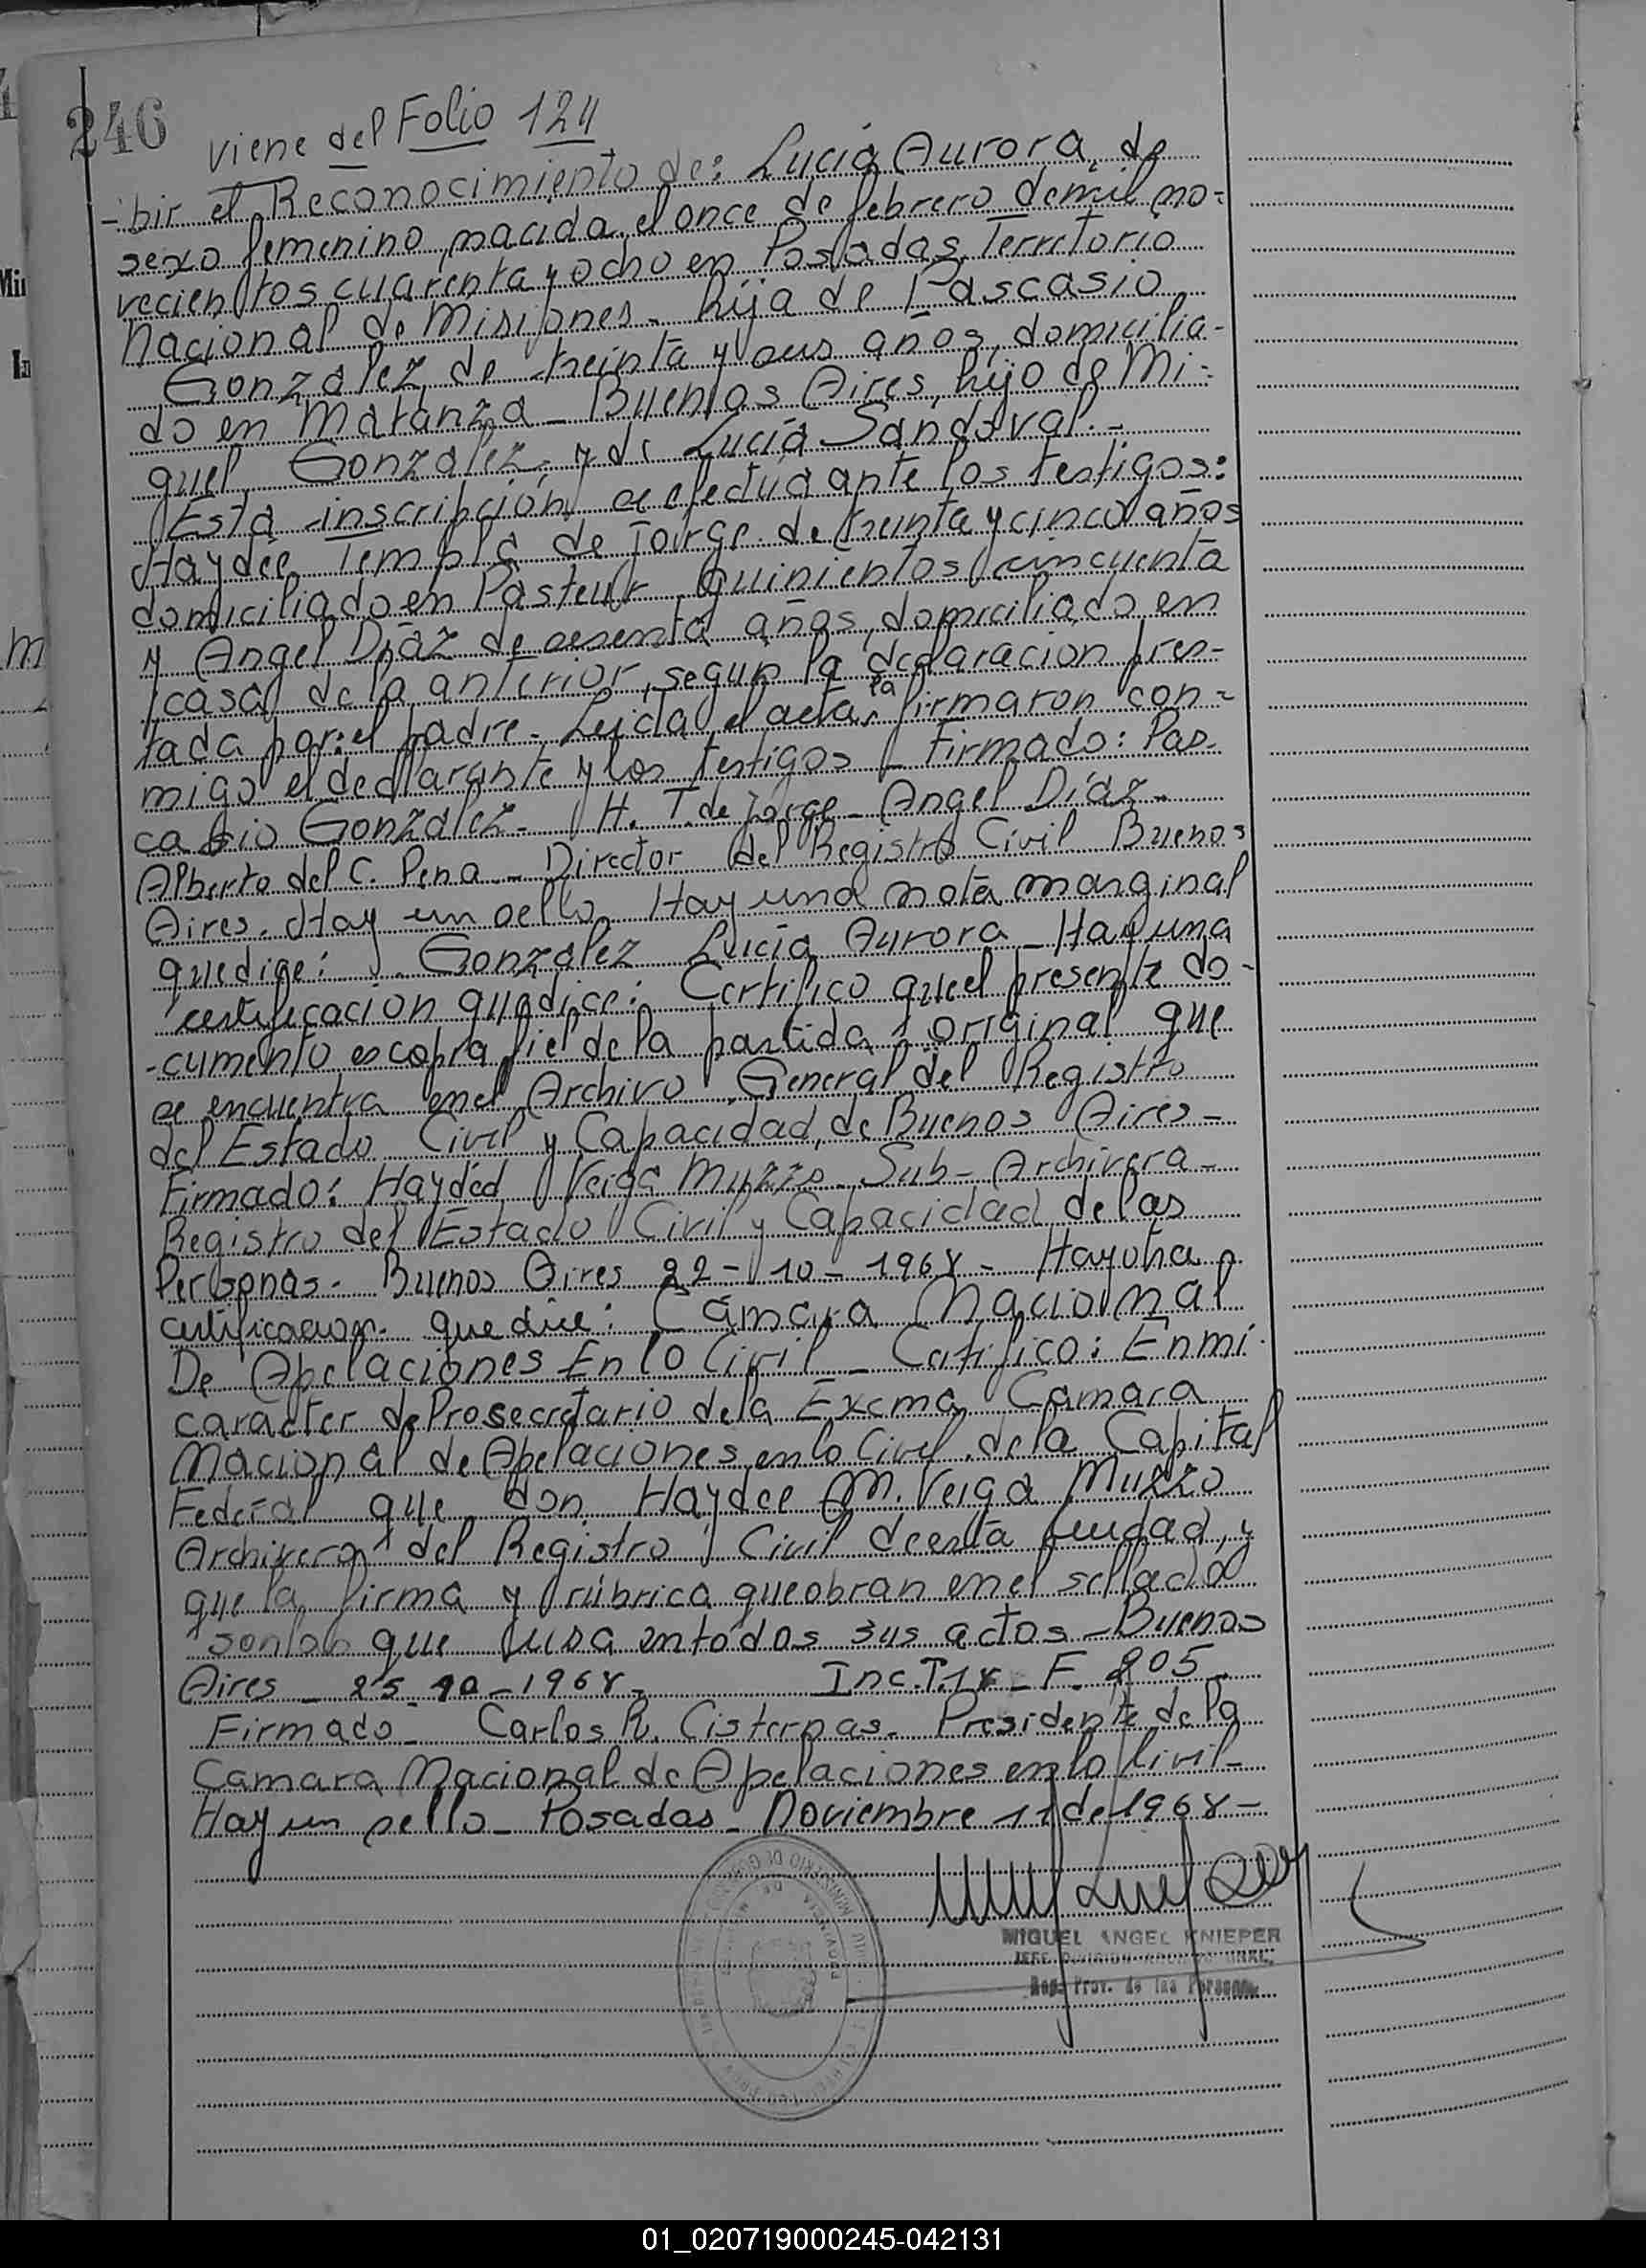 246
Viene del Folio 124
-bir el Reconocimiento de: Lucia Aurora, de
sexo femenino, nacida el once de febrero de mil no-
vecientos cuarenta y ocho en Posadas, Territorio
Nacional de Misiones - hija de Pascasio
Gonzalez, de treinta y seis años, domicilia-
do en Matanza - Buenos Aires, hijo de Mi-
guel Gonzalez, y de Lucia Sandoval.-
Esta inscripción se efectúa ante los testigos:
Haydée Templa de Jorge, de treinta y cinco años
domiciliado en Pasteur quinientos cincuenta
y Angel Diaz de sesenta años, domiciliado en
casa de la anterior, segun la declaracion pres-
tada por: el padre - Leida el acta, la firmaron con-
migo el declarante y los testigos - Firmado: Pas-
casio Gonzalez - H. T. de Jorge - Angel Díaz -
Alberto del C. Pena - Director del Registro Civil Buenos
Aires. Hay un sello. Hay una nota marginal
que dice: Gonzalez Lucia Aurora - Hay una
certificacion que dice: Certifico que el presente do-
-cumento es copia fiel de la partida original que
se encuentra en el Archivo General del Registro
del Estado Civil y Capacidad de Buenos Aires -
Firmado: Hayded Veiga Muzzo - Sub-Archivera -
Registro del Estado Civil y Capacidad de las
Personas - Buenos Aires 22-10-1968 - Hay otra
certificacion que dice: Cámara Nacional
De Apelaciónes En lo Civil - Certifico: En mi
caracter de Prosecretario de la Excma Camara
Nacional de Apelaciones en lo Civil de la Capital
Federal que don Haydee M. Veiga Muzzo
Archivera del Registro Civil de esta ciudad, y
que la firma y rúbrica que obran en el sellado
son las que usa en todos sus actos - Buenos
Aires - 25-10-1968 - Inc. T. 18 - F. 205 -
Firmado - Carlos R. Cisternas - Presidente de la
Camara Nacional de Apelaciones en lo Civil -
Hay un sello - Posadas - Noviembre 11 de 1968 -
MIGUEL ANGEL KNIEPER
JEFE DIVISION
Reg. Prov. de las Personas
01_020719000245-042131